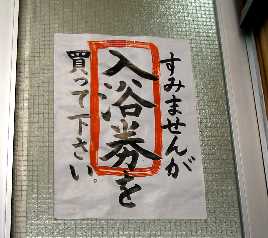 すみませんが
入浴券を
買って下さい。